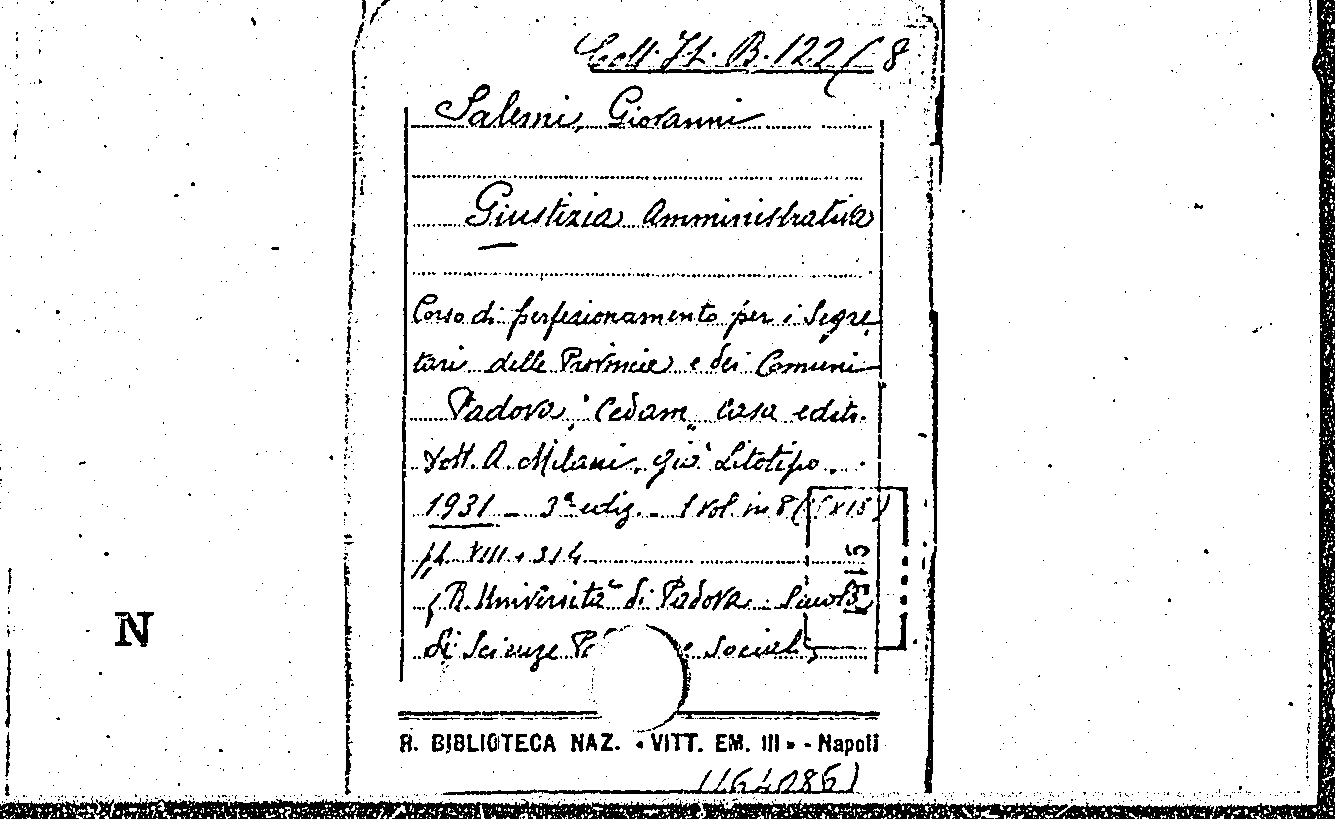 Coll. It. B. 122/8
Salemi, Giovanni
Giustizia Amministrativa
Corso di perfezionamento per i Segre
tari delle Provincie e dei Comuni
Padova, "Cedam" Casa edit.
dott. A. Milani, già Litotipo.
1931 - 3ª ediz. - 1 vol. in 8
pp. VIII, 314
(R. Università di Padova. Scuola
di Scienze e Sociali)
N
R. BIBLIOTECA NAZ. « VITT. EM. III » - Napoli